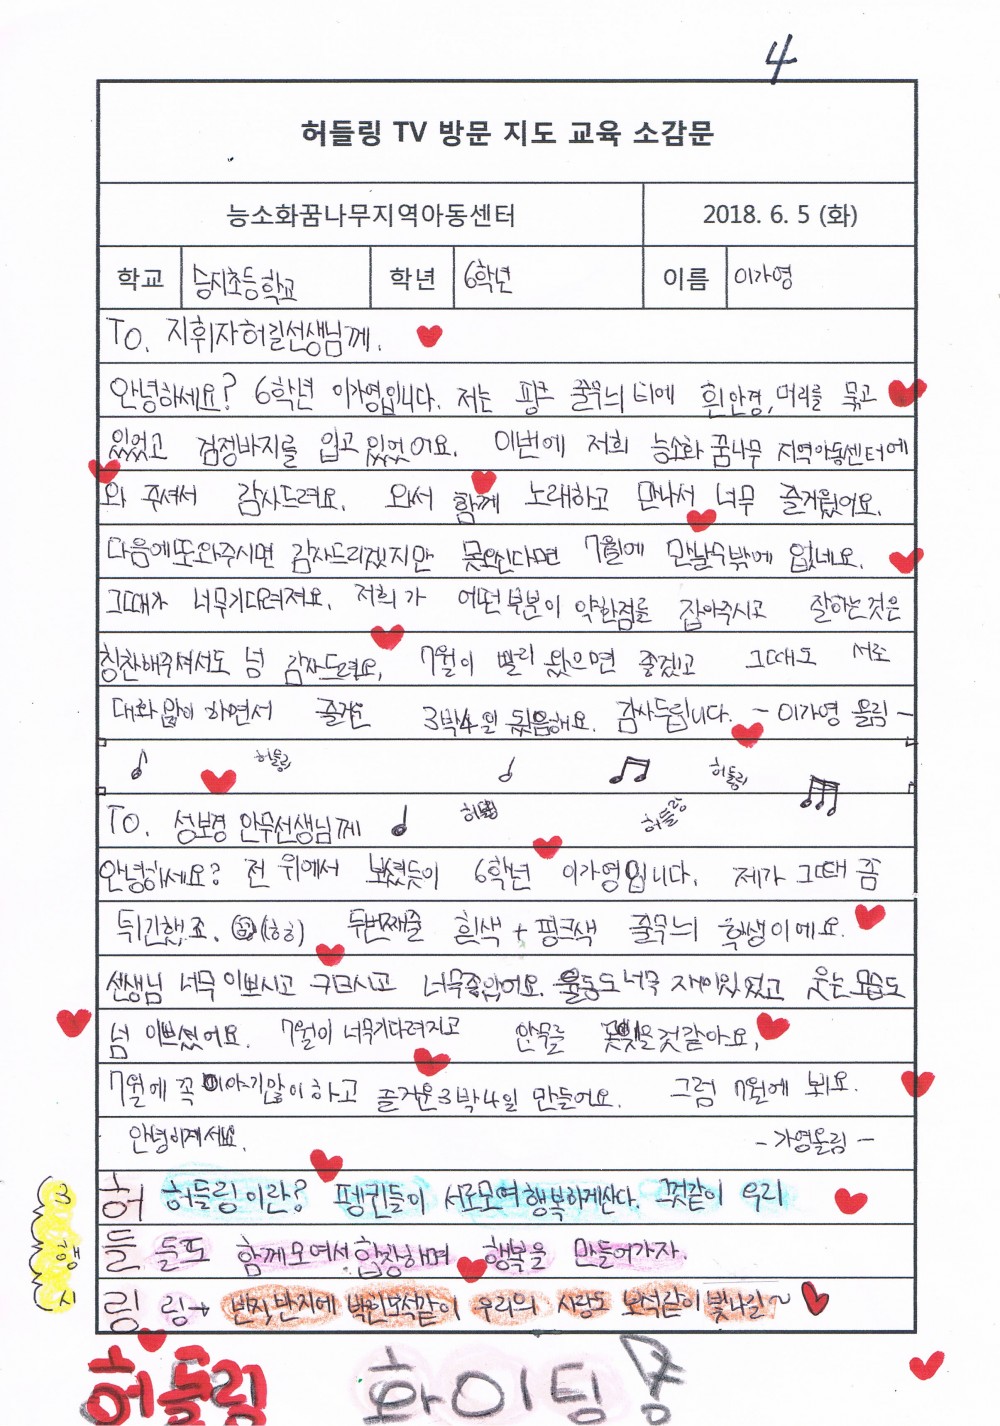 4
허들링 TV 방문 지도 교육 소감문
능소화꿈나무지역아동센터 2018. 6. 5 (화)
학교 승지초등학교 학년 6학년 이름 이가영
TO. 지휘자 허길선생님께.
안녕하세요? 6학년 이가영입니다. 저는 핑크 줄무늬 티에 흰안경, 머리를 묶고
있었고 검정바지를 입고 있었어요. 이번에 저희 능소화 꿈나무 지역아동센터에
와 주셔서 감사드려요. 와서 함께 노래하고 만나서 너무 즐거웠어요.
다음에또와주시면 감사드리겠지만 못오신다면 7월에 만날수밖에 없네요.
그때가 너무기다려져요. 저희가 어떤부분이 약한점을 잡아주시고 잘하는것은
칭찬해주셔서도 넘 감사드려요, 7월이 빨리 왔으면 좋겠고 그때도 서로
대화 많이 하면서 즐거운 3박4일 해요. 감사드립니다. - 이가영 올림 -
허들링 허들링
허들링 허들링
TO. 성보경 안무선생님께
안녕하세요? 전 위에서 보셨듯이 6학년 이가영입니다. 제가 그때 좀
튀긴했죠. (ㅎㅎ) 두번째줄 흰색 + 핑크색 줄무늬 학생이에요.
선생님 너무 이쁘시고 너무좋았어요. 율동도 너무 재미있었고 웃는모습도
넘 이쁘셨어요. 7월이 너무기다려지고 안무를 것같아요,
7월에 꼭 이야기많이하고 즐거운3박4일 만들어요. 그럼 7월에 뵈요.
안녕히계세요. - 가영올림 -
3행시
허 허들링이란? 펭귄들이 서로모여행복하게산다. 그것같이 우리
들 들도 함께모여서합창하며 행복을 만들어가자.
링 링→ 반지, 반지에 박힌보석같이 우리의 사랑도 보석같이빛나길~
허들링 화이팅